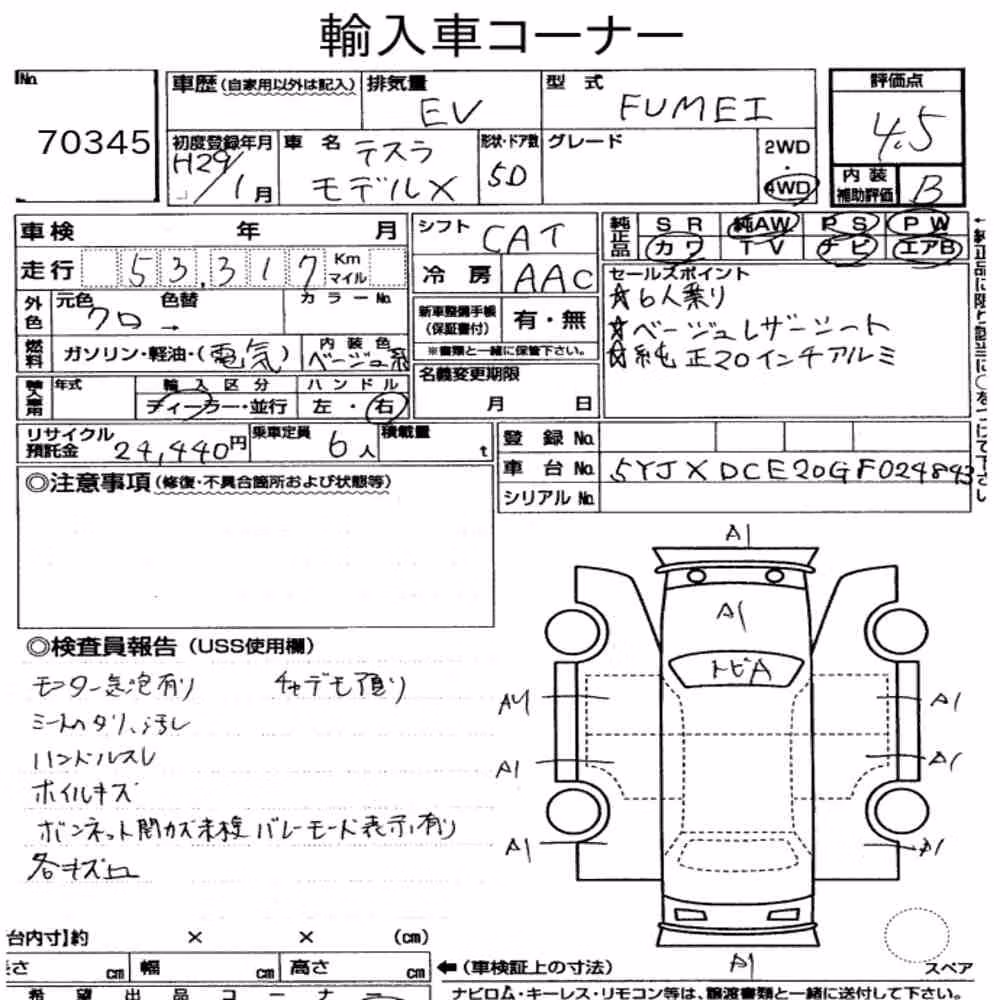 輸入車コーナー
No. 70345
車歴 (自家用以外は記入) 排気量 EV 型式 FUMEI
評価点 4.5
初度登録年月 H29/1月 車名 テスラ モデルX 形状・ドア数 5D グレード 2WD・4WD
内装補助評価 B
車検 年 月
シフト CAT
純正品 SR 純AW PS PW
カワ TV ナビ エアB
走行 53,317 Km マイル
冷房 AAC
セールスポイント
☆6人乗り
☆ベージュレザーシート
☆純正20インチアルミ
外色 元色 クロ → 色替 カラーNo.
新車整備手帳(保証書付) 有・無
※書類と一緒に保管下さい。
燃料 ガソリン・軽油・(電気) 内装色 ベージュ系
輸入車用 年式 輸入区分 ディーラー・並行 ハンドル 左・右
名義変更期限 月 日
リサイクル預託金 24,440円 乗車定員 6人 積載量 t
登録No.
車台No. 5YJXDCE20GF024843
シリアルNo.
◎注意事項(修復・不具合箇所および状態等)
◎検査員報告(USS使用欄)
モニター気泡有り
シートスタリ、汚レ
ハンドルスレ
ホイルキズ
ボンネット開カズ未検 バレーモード表示有り
各キズ凹
A1
A1
トビA
A4 A1
A1 A1
A1 A1
A1
スペア
台内寸】約 × × (cm)
長さ cm 幅 cm 高さ cm
←(車検証上の寸法)
希望出品コーナー
ナビロム・キーレス・リモコン等は、譲渡書類と一緒に送付して下さい。